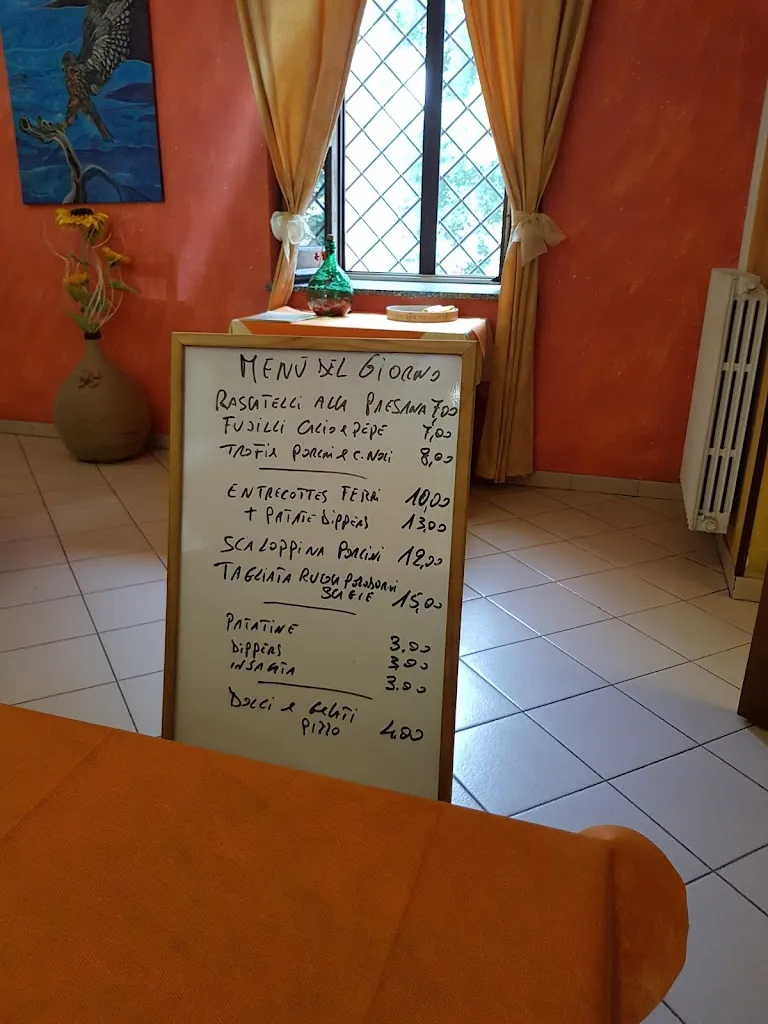 MENÙ DEL GIORNO
RASCATELLI ALLA PAESANA 7,00
FUSILLI CACIO e PEPE 7,00
TROFIE PORCINI e C. NOCI 8,00
ENTRECOTTES FERRI 10,00
+ PATATE DIPPERS 13,00
SCALOPPINA PORCINI 12,00
TAGLIATA RUCOLA POMODORINI
SCAGLIE 15,00
PATATINE 3.00
DIPPERS 3.00
INSALATA 3.00
DOLCI e GELATI
PIZZO 4.00